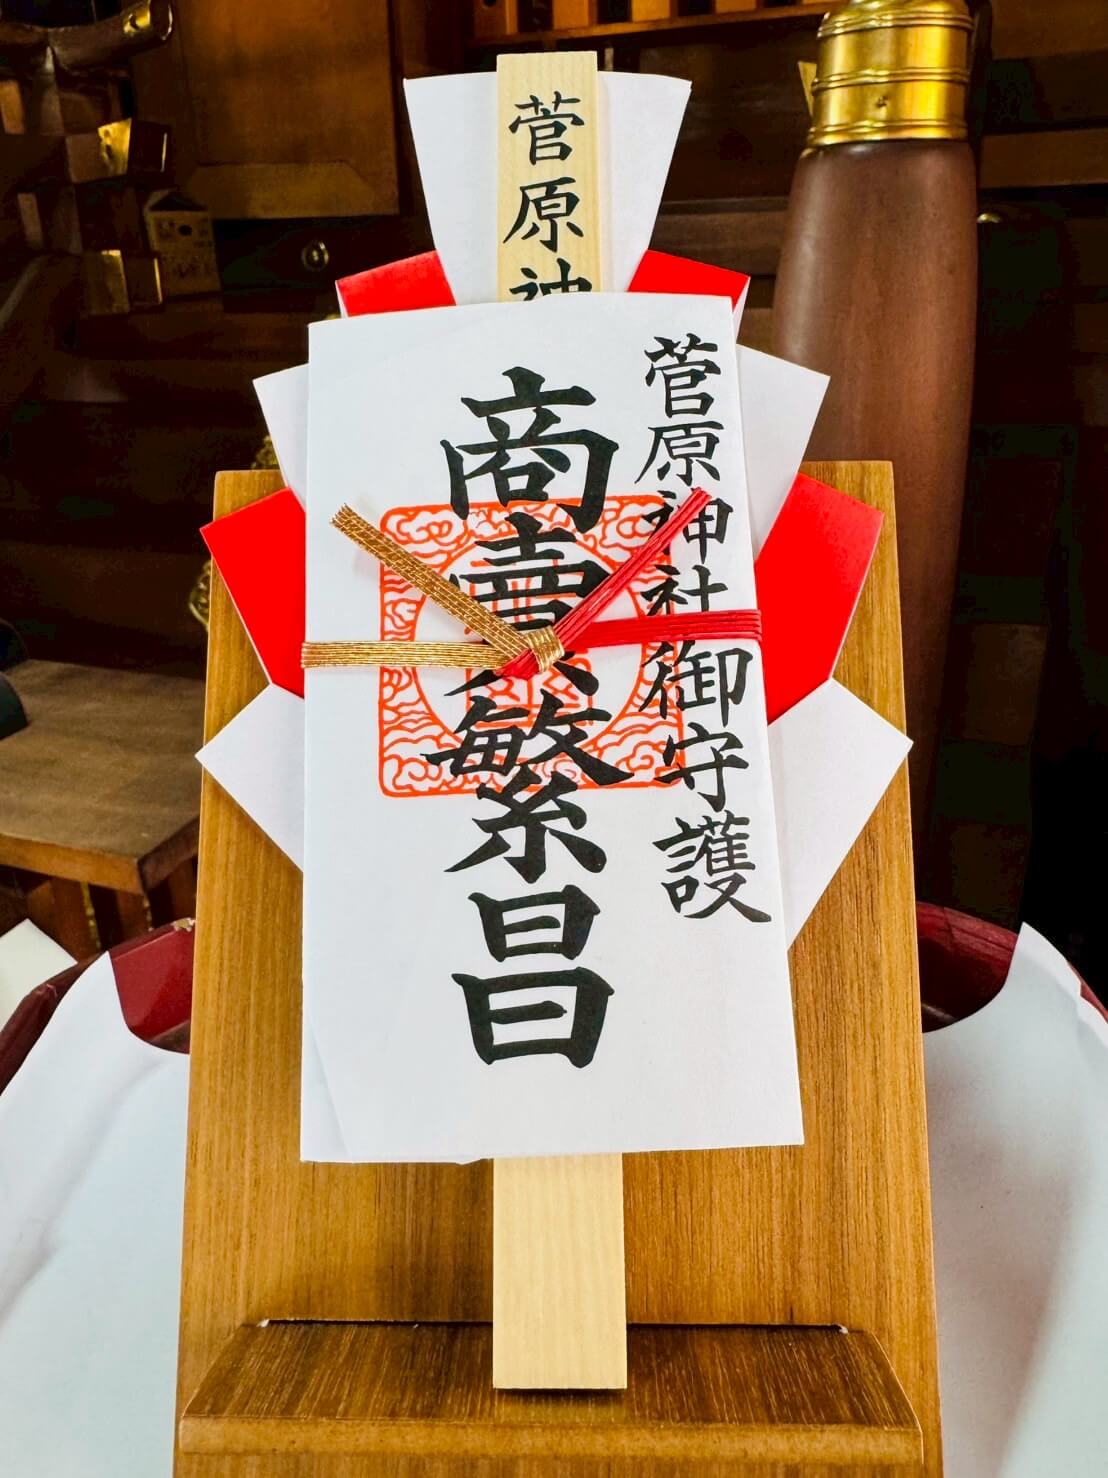 菅原神
菅原神社御守護
商賣繁昌